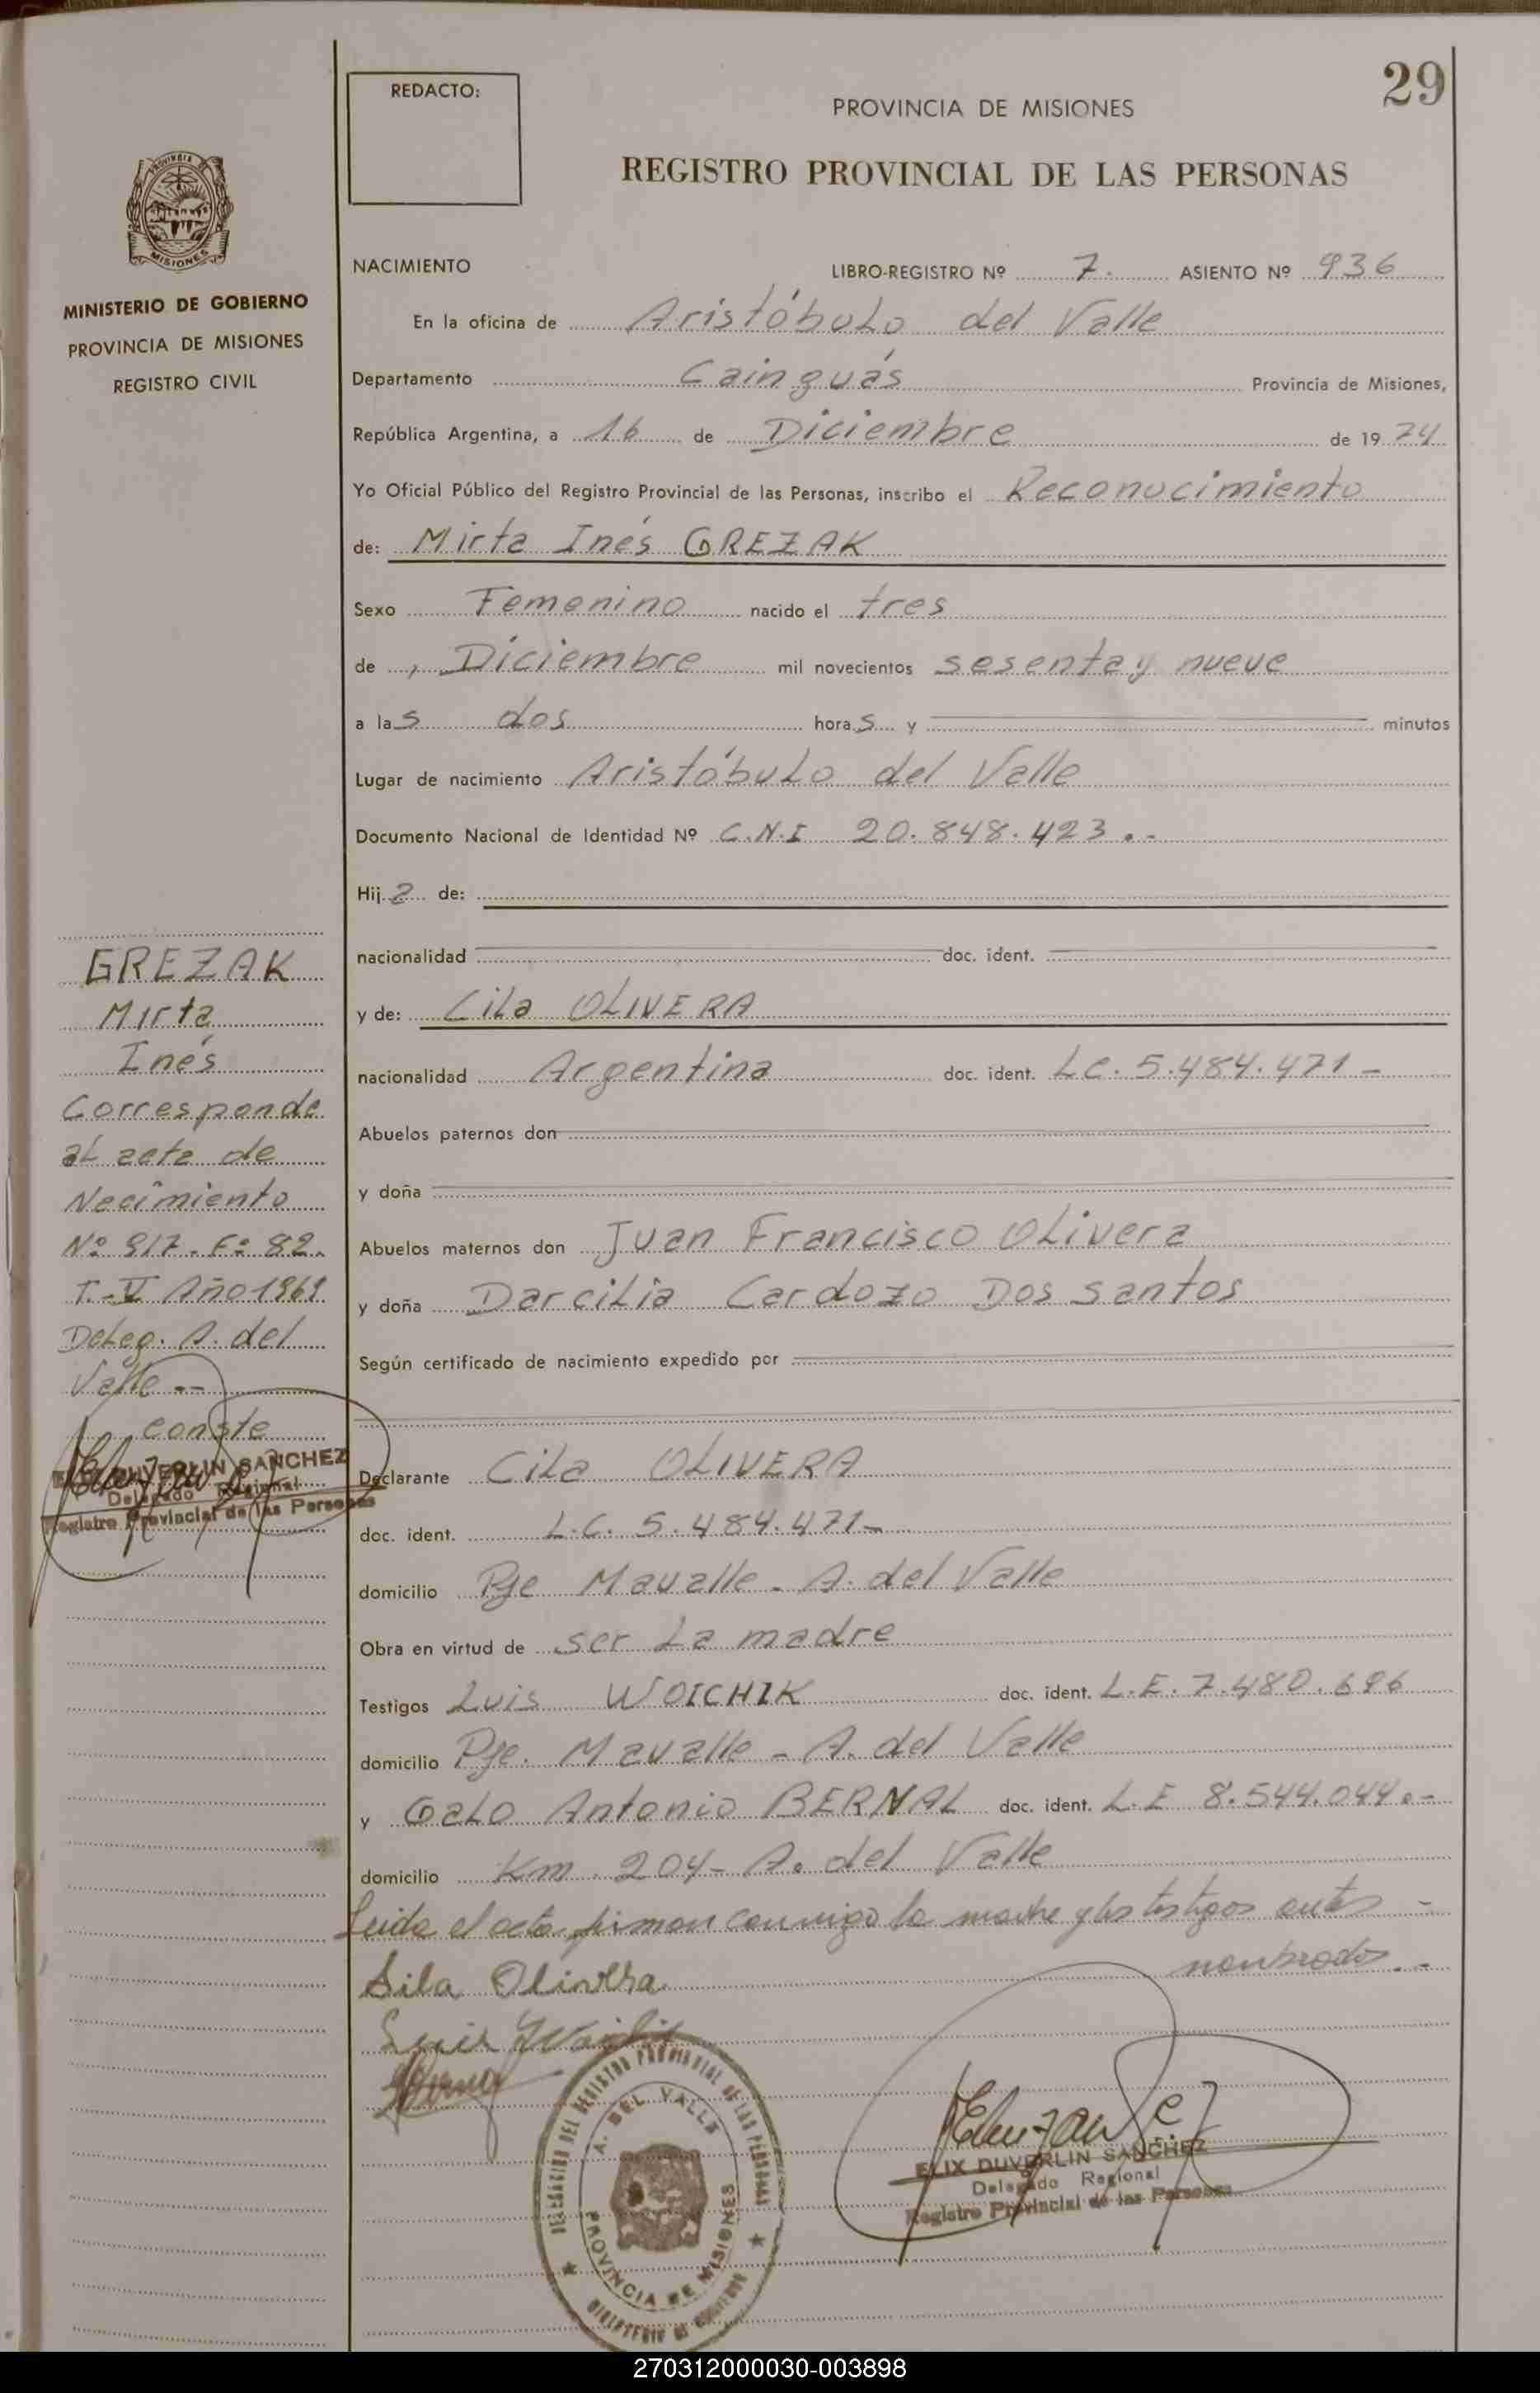 29
REDACTO:
PROVINCIA DE MISIONES
REGISTRO PROVINCIAL DE LAS PERSONAS
PROVINCIA DE
MISIONES
MINISTERIO DE GOBIERNO
PROVINCIA DE MISIONES
REGISTRO CIVIL
NACIMIENTO LIBRO-REGISTRO Nº 7. ASIENTO Nº 936
En la oficina de Aristóbulo del Valle
Departamento Cainguás Provincia de Misiones,
República Argentina, a 16 de Diciembre de 19 74
Yo Oficial Público del Registro Provincial de las Personas, inscribo el Reconocimiento
de: Mirta Inés GREZAK
Sexo Femenino nacido el tres
de , Diciembre mil novecientos sesenta y nueve
a las dos horas y minutos
Lugar de nacimiento Aristóbulo del Valle
Documento Nacional de Identidad Nº C.N.I 20.848.423.-
Hija de:
nacionalidad doc. ident.
y de: Cila OLIVERA
nacionalidad Argentina doc. ident. LC. 5.484.471-
Abuelos paternos don
y doña
Abuelos maternos don Juan Francisco Olivera
y doña Darcilia Cardozo Dos santos
Según certificado de nacimiento expedido por
Declarante Cila OLIVERA
doc. ident. L.C. 5.484.471-
domicilio Pje Mavalle - A. del Valle
Obra en virtud de ser la madre
Testigos Luis WOICHIK doc. ident. L.E. 7.480.696
domicilio Pje. Mavalle - A. del Valle
y Galo Antonio BERNAL doc. ident. L.E 8.544.044.-
domicilio Km. 204- A. del Valle
Leida el acta firman conmigo la madre y los testigos antes -
nombrados.-
Sila Olivera
Luis
GREZAK
Mirta
Inés
Corresponde
al acta de
Nacimiento
Nº 917. Fº 82.
T.-V Año 1969
Deleg. A. del
Valle --
conste
DUVERLIN SANCHEZ
Delegado Regional
Registro Provincial de las Personas
DELEGACION DEL REGISTRO PROVINCIAL DE LAS PERSONAS
A. DEL VALLE
PROVINCIA DE MISIONES
MINISTERIO DE GOBIERNO
ELIX DUVERLIN SANCHEZ
Delegado Regional
Registro Provincial de las Personas
270312000030-003898